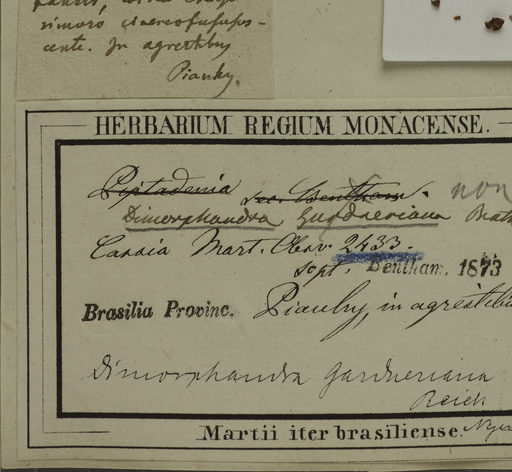 simoro cinereofusces-
cente. In agrestibus
Piauhy.
HERBARIUM REGIUM MONACENSE.
Piptadenia sec. Bentham. non
Dimorphandra Gardneriana
Cassia Mart. Observ. 2433.
Sept. Bentham. 1873
Brasilia Provinc. Piauhy, in agrestibu
Dimorphandra Gardneriana
Martii iter brasiliense.